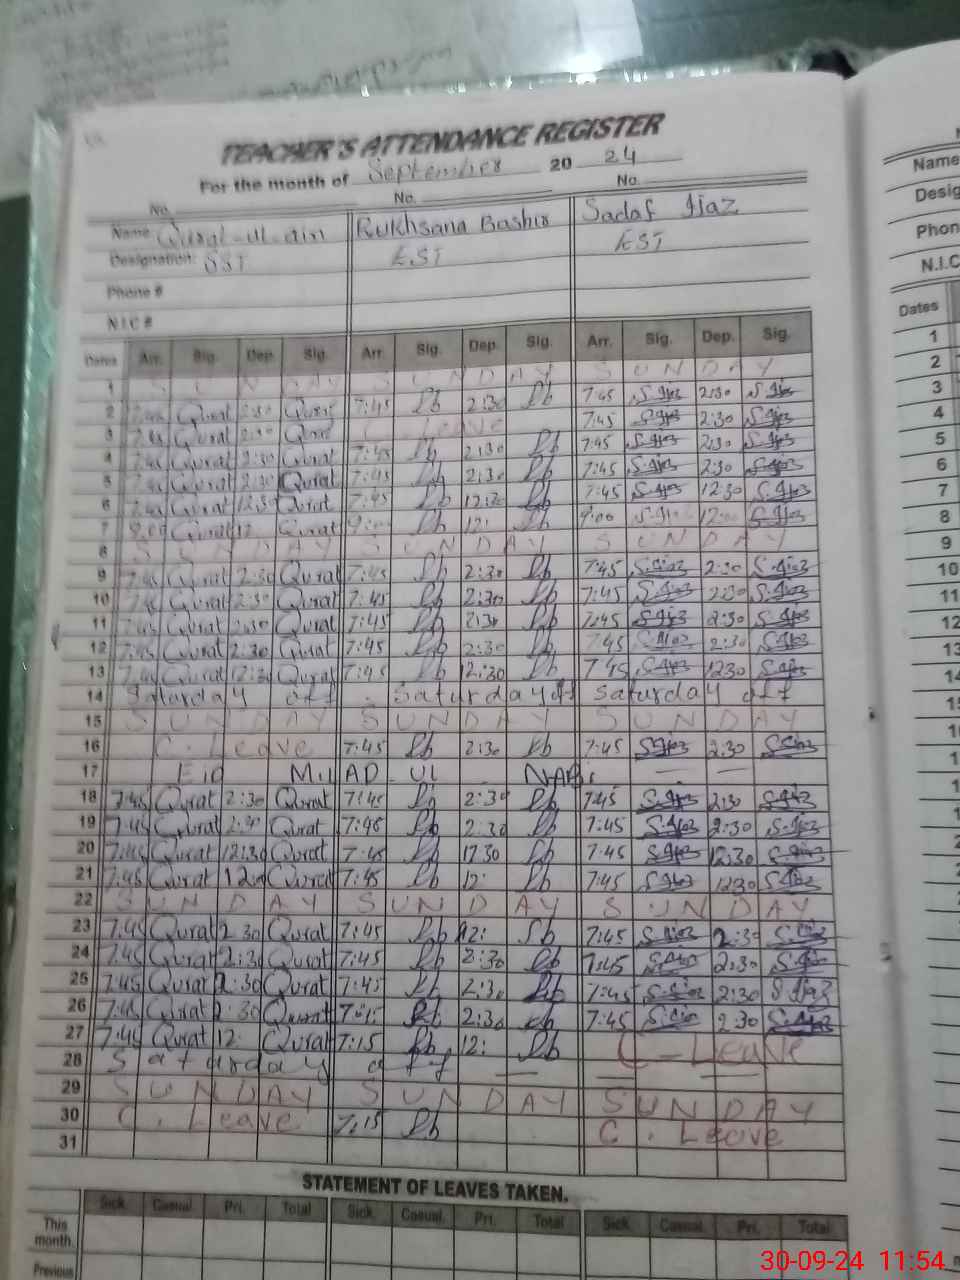 TEACHER'S ATTENDANCE REGISTER
For the month of September 20 24
No. No. No.
Name Qurat-ul-ain Rukhsana Bashir Sadaf Ijaz
Designation: SST EST EST
Phone #
N.I.C #
Dates Arr. Sig. Dep. Sig. Arr. Sig. Dep. Sig. Arr. Sig. Dep. Sig.
1 SUNDAY SUNDAY SUNDAY
2 7:45 Qurat 2:30 Qurat 7:45 Rb 2:30 Rb 7:45 S.Ijaz 2:30 S.Ijaz
3 7:45 Qurat 2:30 Qurat C. Leave 7:45 S.Ijaz 2:30 S.Ijaz
4 7:45 Qurat 2:30 Qurat 7:45 Rb 2:30 Rb 7:45 S.Ijaz 2:30 S.Ijaz
5 7:45 Qurat 2:30 Qurat 7:45 Rb 2:30 Rb 7:45 S.Ijaz 2:30 S.Ijaz
6 7:45 Qurat 12:30 Qurat 7:45 Rb 12:30 Rb 7:45 S.Ijaz 12:30 S.Ijaz
7 9:00 Qurat 12 Qurat 9:00 Rb 12: Rb 9:00 S.Ijaz 12:00 S.Ijaz
8 SUNDAY SUNDAY SUNDAY
9 7:45 Qurat 2:30 Qurat 7:45 Rb 2:30 Rb 7:45 S.Ijaz 2:30 S.Ijaz
10 7:45 Qurat 2:30 Qurat 7:45 Rb 2:30 Rb 7:45 S.Ijaz 2:30 S.Ijaz
11 7:45 Qurat 2:30 Qurat 7:45 Rb 2:30 Rb 7:45 S.Ijaz 2:30 S.Ijaz
12 7:45 Qurat 2:30 Qurat 7:45 Rb 2:30 Rb 7:45 S.Ijaz 2:30 S.Ijaz
13 7:45 Qurat 12:30 Qurat 7:45 Rb 12:30 Rb 7:45 S.Ijaz 1230 S.Ijaz
14 Saturday off Saturday off Saturday off
15 SUNDAY SUNDAY SUNDAY
16 C. Leave 7:45 Rb 2:30 Rb 7:45 S.Ijaz 2:30 S.Ijaz
17 Eid Mil AD UL NABi
18 7:45 Qurat 2:30 Qurat 7:45 Rb 2:30 Rb 7:45 S.Ijaz 2:30 S.Ijaz
19 7:45 Qurat 2:30 Qurat 7:45 Rb 2:30 Rb 7:45 S.Ijaz 2:30 S.Ijaz
20 7:45 Qurat 12:30 Qurat 7:45 Rb 12:30 Rb 7:45 S.Ijaz 12:30 S.Ijaz
21 7:45 Qurat Qurat 7:45 Rb 12: Rb 7:45 S.Ijaz 1230 S.Ijaz
22 SUNDAY SUNDAY SUNDAY
23 7:45 Qurat 2:30 Qurat 7:45 Rb 12: Rb 7:45 S.Ijaz 2:30 S.Ijaz
24 7:45 Qurat 2:30 Qurat 7:45 Rb 2:30 Rb 7:45 S.Ijaz 2:30 S.Ijaz
25 7:45 Qurat 2:30 Qurat 7:45 Rb 2:30 Rb 7:45 S.Ijaz 2:30 S.Ijaz
26 7:45 Qurat 2:30 Qurat Rb 2:30 Rb 7:45 S.Ijaz 2:30 S.Ijaz
27 7:45 Qurat 12: Qurat 7:15 Rb 12: Rb C-Leave
28 Saturday off
29 SUNDAY SUNDAY SUNDAY
30 C. Leave 7:15 Rb C. Leave
31
STATEMENT OF LEAVES TAKEN.
Sick. Casual. Pri. Total Sick. Casual. Pri. Total Sick. Casual. Pri. Total
This month.
Previous
Name
Desig
Phon
N.I.C
Dates
1
2
3
4
5
6
7
8
9
10
11
12
13
14
30-09-24 11:54